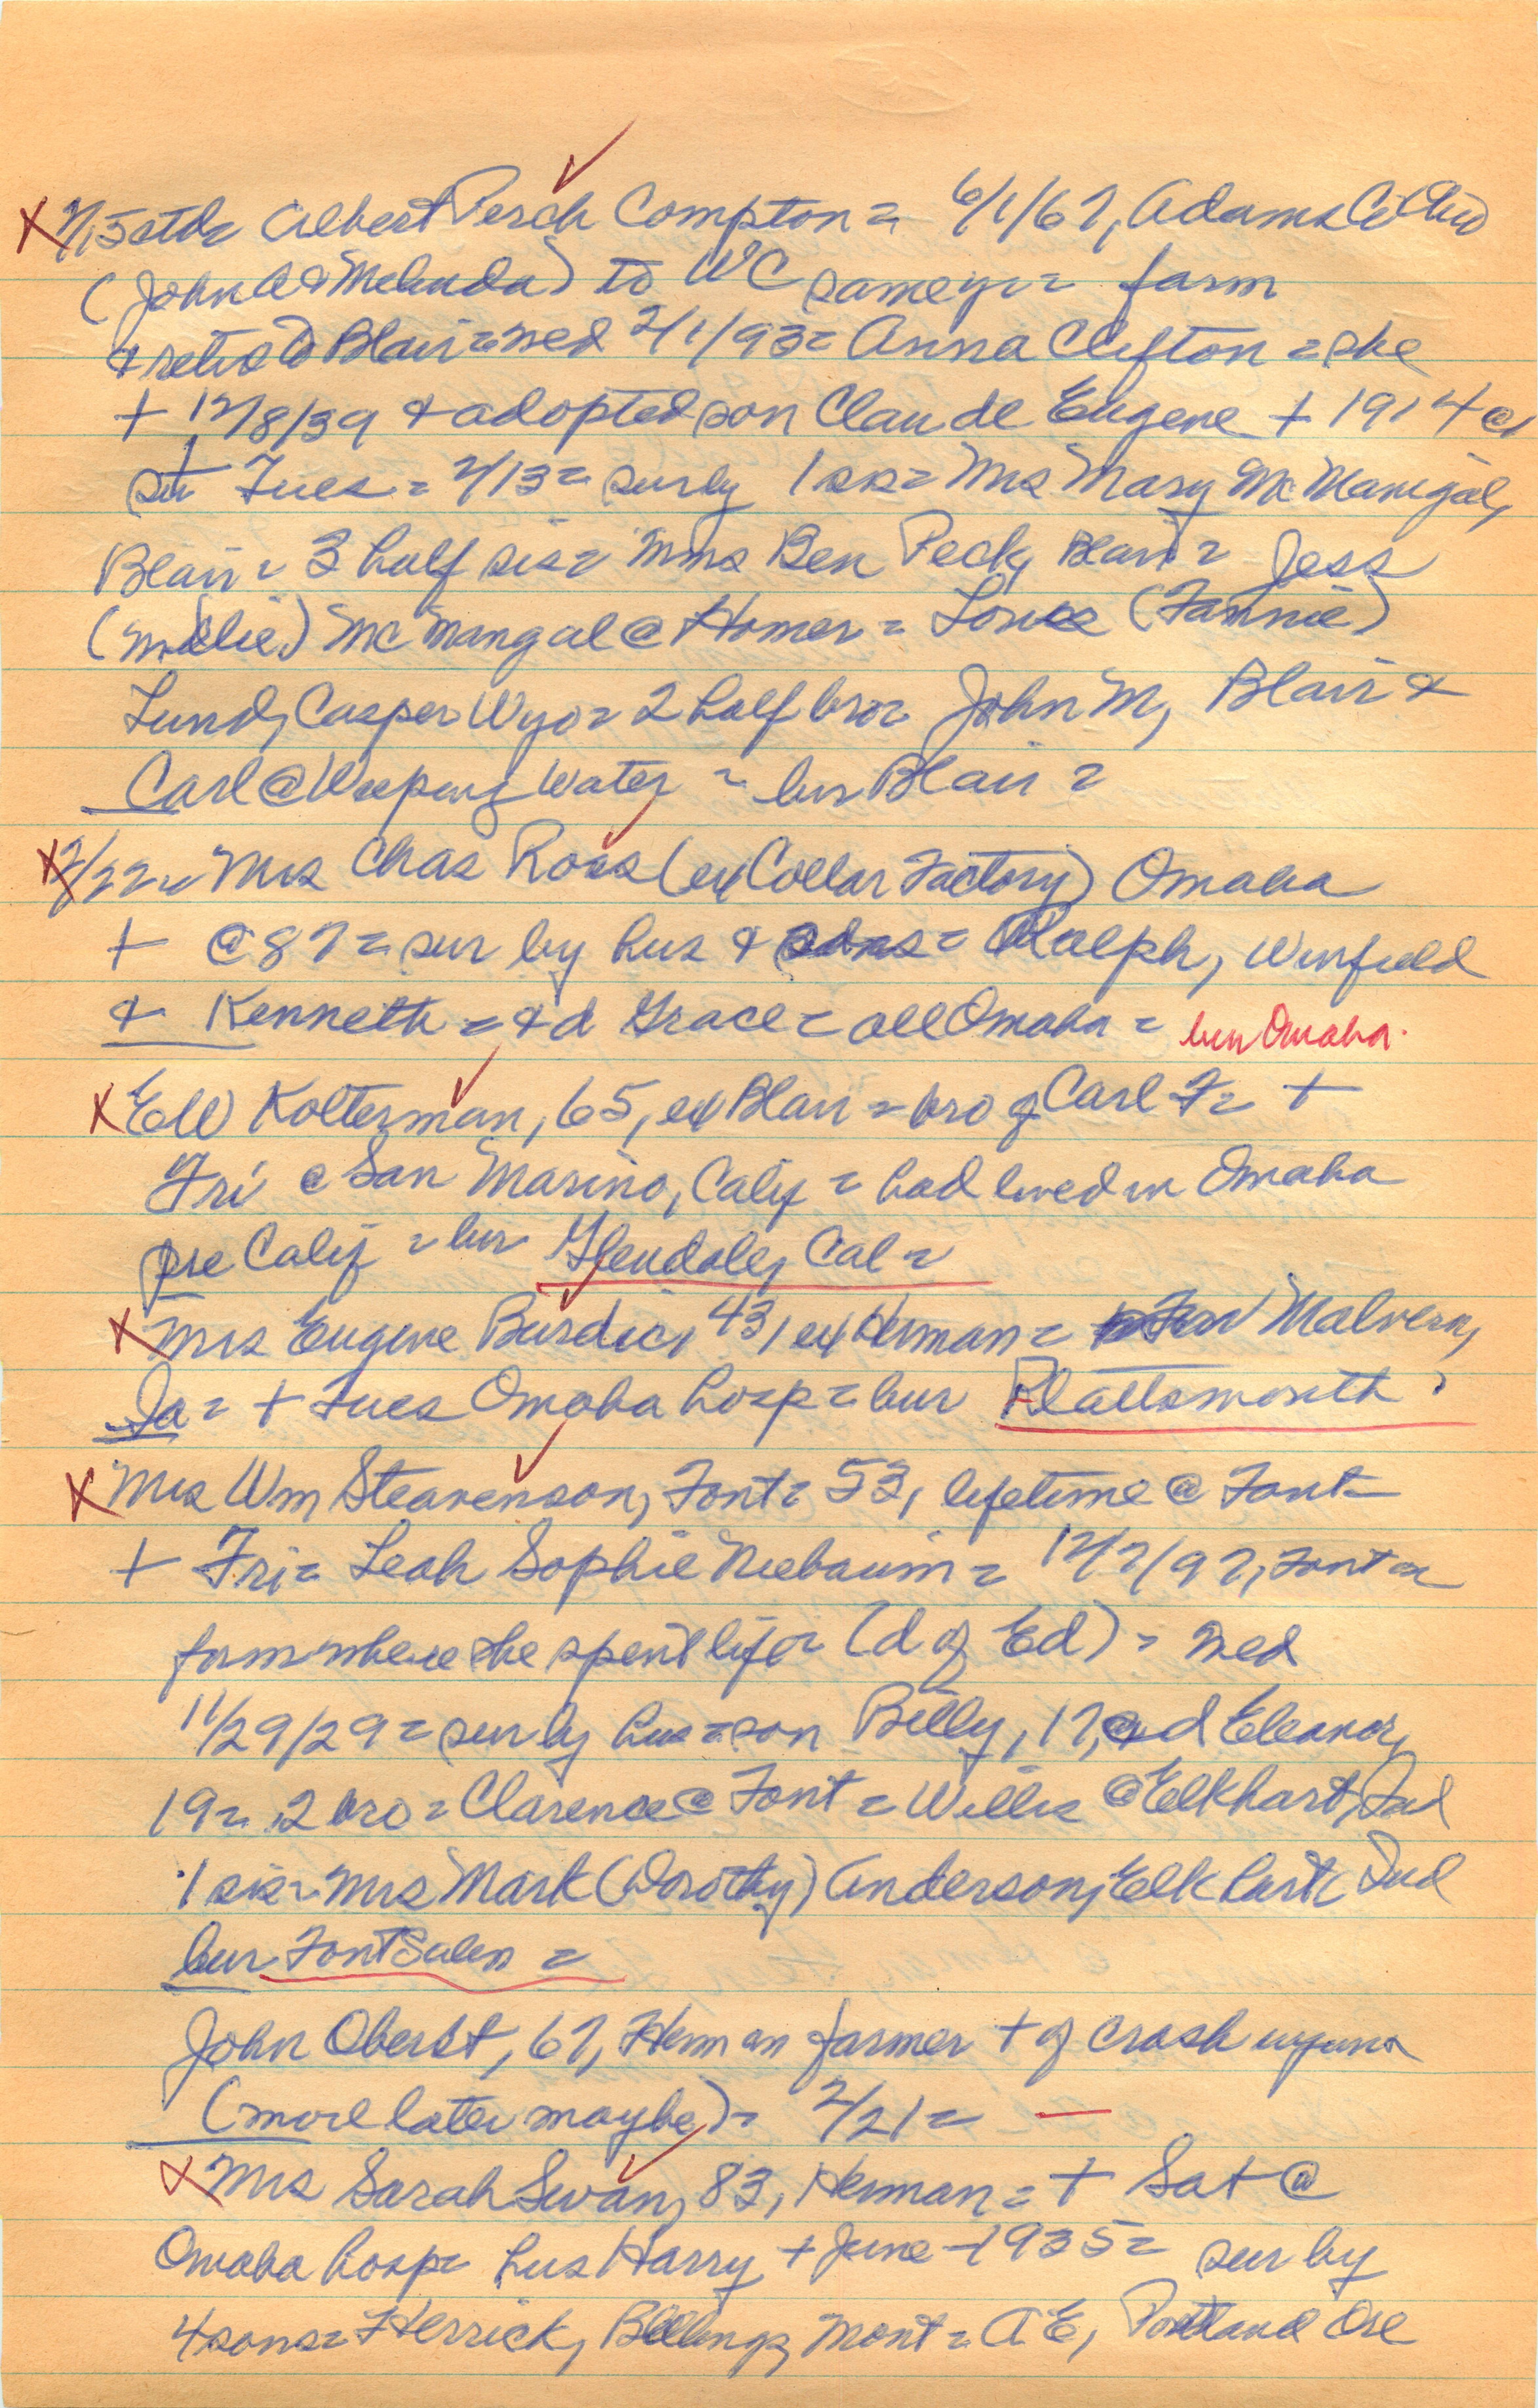 X 2/15 Albert Perch Compton = 6/1/67, Adams Co Ohio
(John A & Melinda) to WC same yr = farm
& retired Blair = wed 2/1/93 = Anna Clifton = she
+ 12/8/39 & adopted son Claude Eugene + 1914 @
Tues = 2/13 = surby 1 sis = Mrs Mary McManigal,
Blair = 3 half sis = Mms Ben Peck, Blair = Jess
(Millie) McMangal @ Homer = Louis (Fannie)
Lund, Casper Wyo = 2 half bro = John M, Blair &
Carl @ Weeping Water = bur Blair =
X 2/22 = Mrs Chas Ross (ex Collar Factory) Omaha
+ @ 87 = sur by hus & sons = Ralph, Winfield
& Kenneth = & d Grace = all Omaha = bur Omaha.
X EW Kolterman, 65, ex Blair = bro of Carl F = +
Fri @ San Marino, Calif = had lived in Omaha
pre Calif = bur Glendale, Cal =
X Mrs Eugene Burdic, 43, ex Herman = Malvern,
Ia = + Tues Omaha hosp = bur Plattsmouth
X Mrs Wm Steavenson, Font = 53, lifetime @ Font =
+ Fri = Leah Sophie Niebaum = 12/7/97, Font on
farm where she spent life = (d of Ed) = wed
11/29/29 = sur by hus = son Billy, 17, & d Eleanor,
19 = 2 bro = Clarence @ Font = Willis @ Elkhart, Ind
1 sis = Mrs Mark (Dorothy) Anderson, Elkhart, Ind
bur Font Salem =
John Oberst, 67, Herman farmer + of crash injuries
(more later maybe) = 2/21 = —
X Mrs Sarah Swan, 83, Herman = + Sat @
Omaha hosp = hus Harry + June - 1935 = sur by
4 sons = Herrick, Billings, Mont = A E, Portland Ore